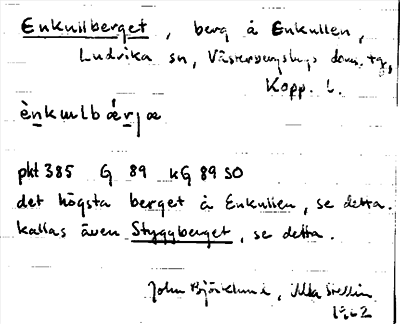 Enkullberget, berg å Enkullen,
Ludvika sn, Västerbergslags doms. tg,
Kopp. l.
ènkɯlbǽrjæ
pkt 385 G 89 kG 89 SO
det högsta berget å Enkullen, se detta.
kallas även Styggberget, se detta.
John Björklund,
1962